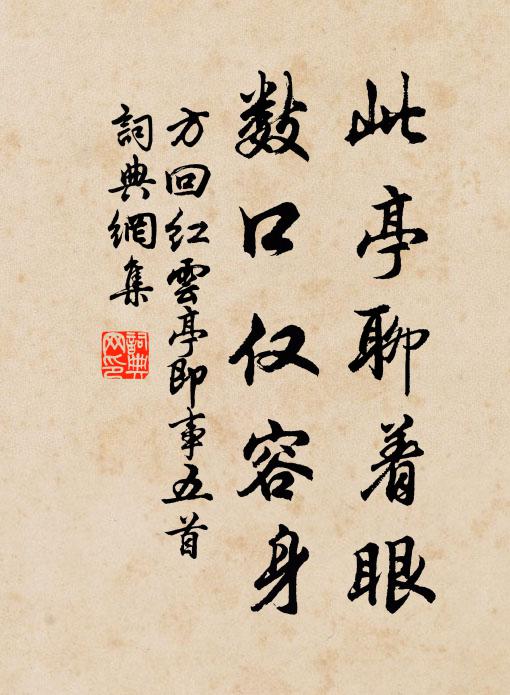 此亭聊着眼
数口仅容身
方回红雲亭即事五首
詞典網集
詞典網印